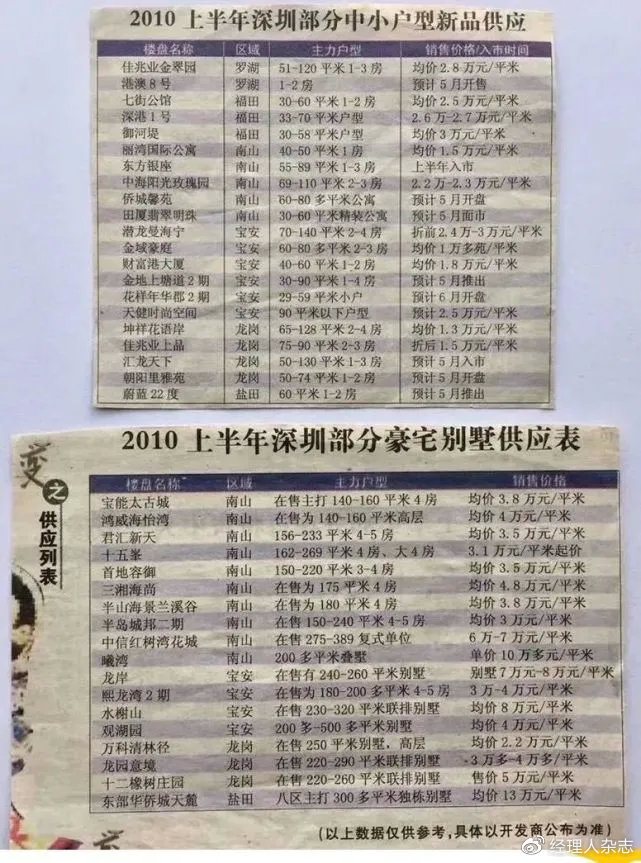 2010 上半年深圳部分中小户型新品供应
楼盘名称 区域 主力户型 销售价格/入市时间
佳兆业金翠园 罗湖 51-120 平米 1-3 房 均价 2.8 万元/平米
港澳 8 号 罗湖 1-2 房 预计 5 月开售
七街公馆 福田 30-60 平米 1-2 房 均价 2.5 万元/平米
深港 1 号 福田 33-70 平米户型 2.6 万-2.7 万元/平米
御河堤 福田 30-58 平米户型 均价 3 万元/平米
丽湾国际公寓 南山 40-50 平米 1 房 均价 1.5 万元/平米
东方银座 南山 55-89 平米 1-3 房 上半年入市
中海阳光玫瑰园 南山 69-110 平米 2-3 房 2.2 万-2.3 万元/平米
侨城馨苑 南山 60-80 多平米公寓 预计 5 月开盘
田厦翡翠明珠 南山 30-60 平米精装公寓 预计 5 月面市
潜龙曼海宁 宝安 70-140 平米 2-4 房 折前 2.4 万-3 万元/平米
金域豪庭 宝安 60-80 多平米 2-3 房 均价 1 万多苑/平米
财富港大厦 宝安 40-60 平米 1-2 房 均价 1.8 万元/平米
金地上塘道 2 期 宝安 30-90 平米 1-4 房 预计 5 月推出
花样年华郡 2 期 宝安 29-59 平米小户 预计 6 月开盘
天健时尚空间 宝安 90 平米以下户型 均价 2.5 万元/平米
坤祥花语岸 龙岗 65-128 平米 2-4 房 均价 1.3 万元/平米
佳兆业上品 龙岗 75-90 平米 2-3 房 折后 1.5 万元/平米
汇龙天下 龙岗 50-130 平米 1-3 房 预计 5 月入市
朝阳里雅苑 龙岗 50-74 平米 1-2 房 预计 5 月开盘
蔚蓝 22 度 盐田 60 平米 1-2 房 预计 5 月推出
2010 上半年深圳部分豪宅别墅供应表
变之供应列表
楼盘名称 区域 主力户型 销售价格
宝能太古城 南山 在售主打 140-160 平米 4 房 均价 3.8 万元/平米
鸿威海怡湾 南山 在售为 140-160 平米高层 均价 4 万元/平米
君汇新天 南山 156-233 平米 4-5 房 均价 3.5 万元/平米
十五峯 南山 162-269 平米 4 房、大 4 房 3.1 万元/平米起价
首地容御 南山 150-220 平米 3-4 房 均价 3.5 万元/平米
三湘海尚 南山 在售为 175 平米 4 房 均价 4.8 万元/平米
半山海景兰溪谷 南山 在售为 180 平米 4 房 均价 3.8 万元/平米
半岛城邦二期 南山 在售 150-240 平米 4-5 房 均价 3 万元/平米
中信红树湾花城 南山 在售 275-389 复式单位 6 万-7 万元/平米
曦湾 南山 200 多平米叠墅 单价 10 万多元/平米
龙岸 宝安 在售有 240-260 平米别墅 别墅 7 万元-8 万元/平米
熙龙湾 2 期 宝安 在售为 180-200 多平米 4-5 房 3 万-4 万元/平米
水榭山 宝安 在售 230-320 平米联排别墅 均价 8 万元/平米
观湖园 宝安 200 多-500 多平米别墅 均价 4 万元/平米
万科清林径 龙岗 在售 250 平米别墅，高层 均价 2.2 万元/平米
龙园意境 龙岗 在售 220-290 平米联排别墅 3 万多-4 万多/平米
十二橡树庄园 龙岗 在售 220-260 平米联排别墅 售价 5 万元/平米
东部华侨城天麓 盐田 八区主打 300 多平米独栋别墅 均价 13 万元/平米
(以上数据仅供参考，具体以开发商公布为准)
@经理人杂志